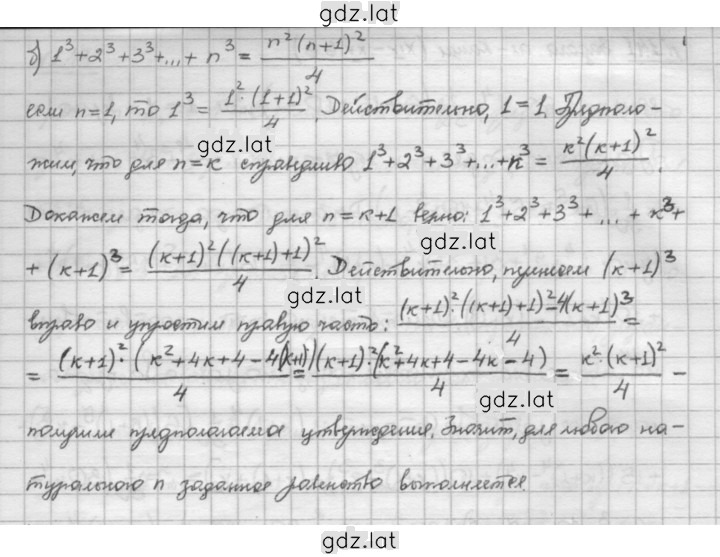 gdz.lat
б) 1³+2³+3³+...+ n³ = n²(n+1)²/4
если n=1, то 1³ = 1²·(1+1)²/4. Действительно, 1=1. Предполо-
gdz.lat
жим, что для n=к справедливо 1³+2³+3³+...+к³ = к²(к+1)²/4.
Докажем тогда, что для n=к+1 верно: 1³+2³+3³+...+ к³+
gdz.lat
+ (к+1)³ = (к+1)²((к+1)+1)²/4. Действительно, (к+1)³
gdz.lat
вправо и упростим правую часть: (к+1)²·((к+1)+1)²-4(к+1)³/4 =
= (к+1)²·(к²+4к+4-4(к+1))/4 = (к+1)²·(к²+4к+4-4к-4)/4 = к²·(к+1)²/4 -
gdz.lat
получили предполагаемое утверждение. Значит, для любого на-
турального n заданное равенство выполняется.
gdz.lat